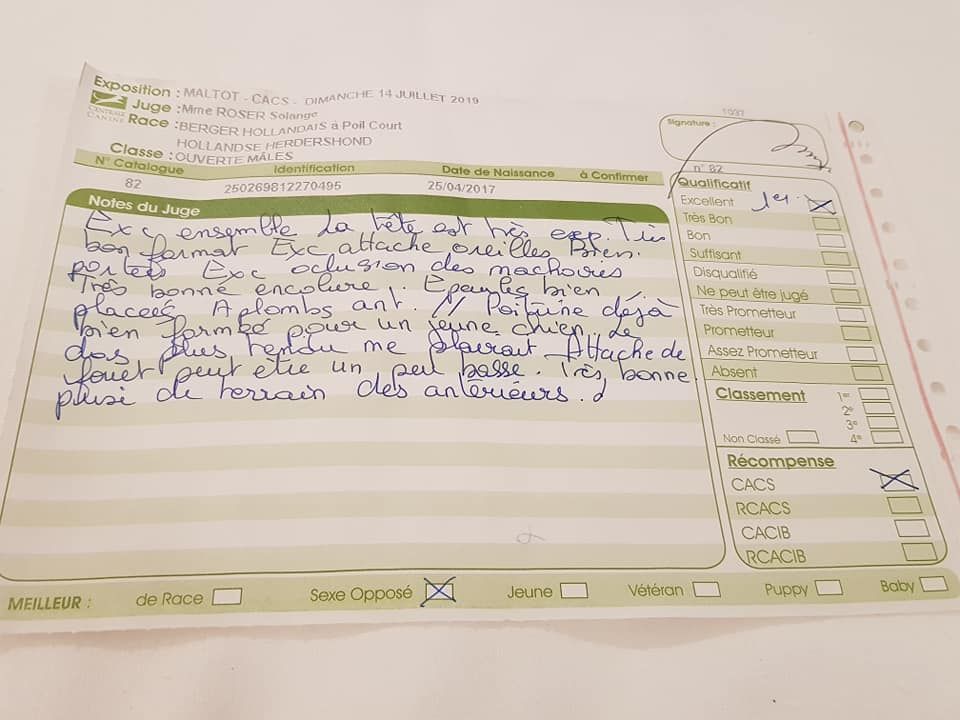 Exposition : MALTOT - CACS - DIMANCHE 14 JUILLET 2019
Juge : Mme ROSER Solange
CENTRALE CANINE
Race : BERGER HOLLANDAIS à Poil Court
HOLLANDSE HERDERSHOND
Classe : OUVERTE MÂLES
N° Catalogue Identification Date de Naissance à Confirmer
82 250269812270495 25/04/2017
Notes du Juge
Exc ensemble La tête est très exp. Très
bon format Exc attache oreilles Bien
portées Exc oclusion des machoires
Très bonne encolure. Epaules bien
placées Aplombs ant. // Poitrine déjà
bien formée pour un jeune chien. Le
dos plus tendu me plairait Attache de
fouet peut être un peu basse. Très bonne
prise de terrain des antérieurs.
1037
Signature :
n° 82
Qualificatif
Excellent 1er
Très Bon
Bon
Suffisant
Disqualifié
Ne peut être jugé
Très Prometteur
Prometteur
Assez Prometteur
Absent
Classement 1er
2e
3e
Non Classé 4e
Récompense
CACS
RCACS
CACIB
RCACIB
MEILLEUR : de Race Sexe Opposé Jeune Vétéran Puppy Baby